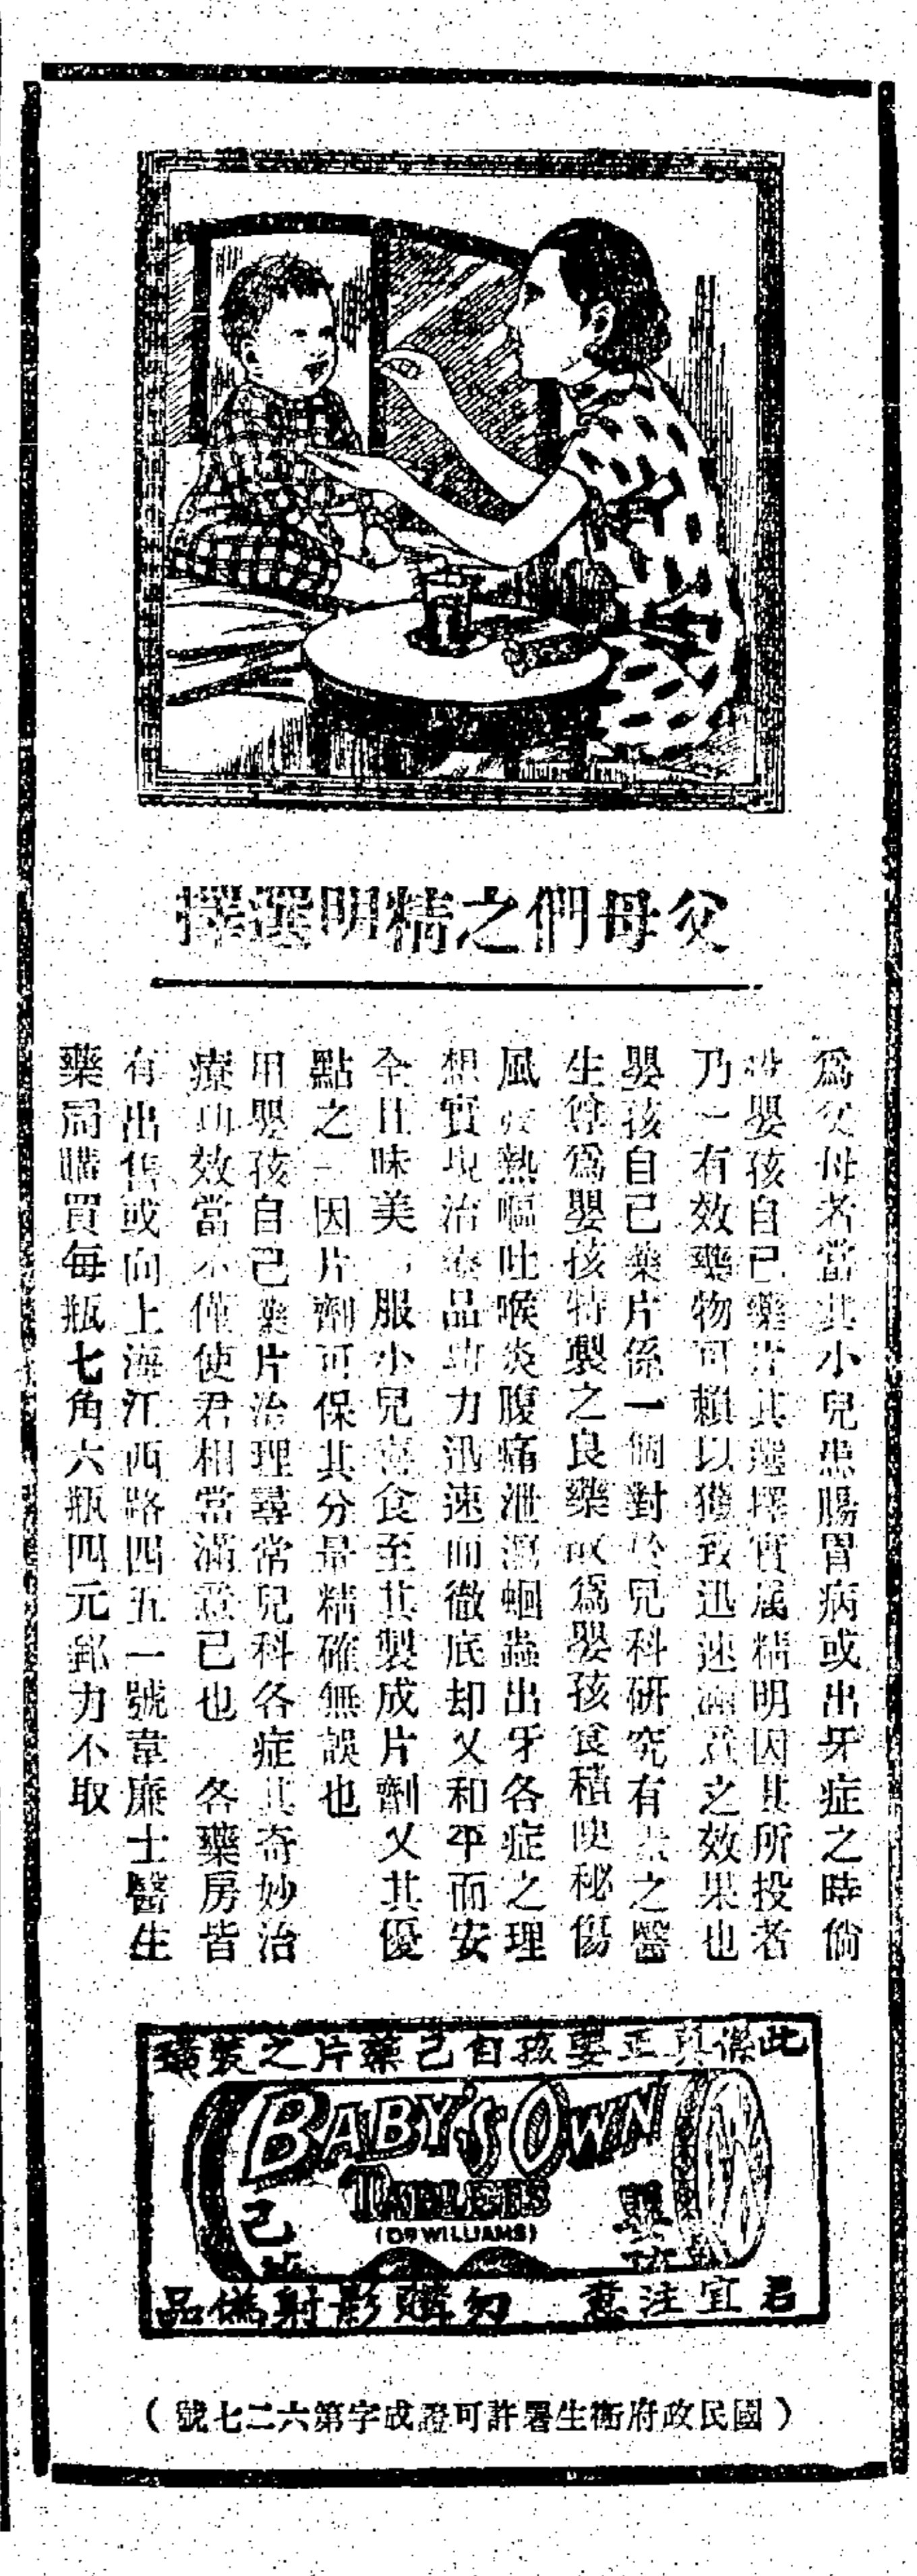 父母們之精明選擇
爲父母者當其小兒患腸胃病或出牙症之時倘
投嬰孩自己藥片其選擇實屬精明因其所投者
乃一有效藥物可賴以獲致迅速滿意之效果也
嬰孩自己藥片係一個對於兒科研究有素之醫
生尊爲嬰孩特製之良藥故爲嬰孩食積便秘傷
風發熱嘔吐喉炎腹痛泄瀉蛔蟲出牙各症之理
想實現治療品功力迅速而徹底却又和平而安
全且味美易服小兒喜食至其製成片劑又其優
點之一因片劑可保其分量精確無誤也
用嬰孩自己藥片治理尋常兒科各症其奇妙治
療功效當不僅使君相當滿意已也 各藥房皆
有出售或向上海江西路四五一號韋廉士醫生
藥局購買每瓶七角六瓶四元郵力不取
此係真正嬰孩自己藥片之裝璜
BABY'S OWN
TABLETS
(DR WILLIAMS)
嬰
己
君宜注意 勿購影射僞品
(國民政府衞生署許可證成字第六二七號)